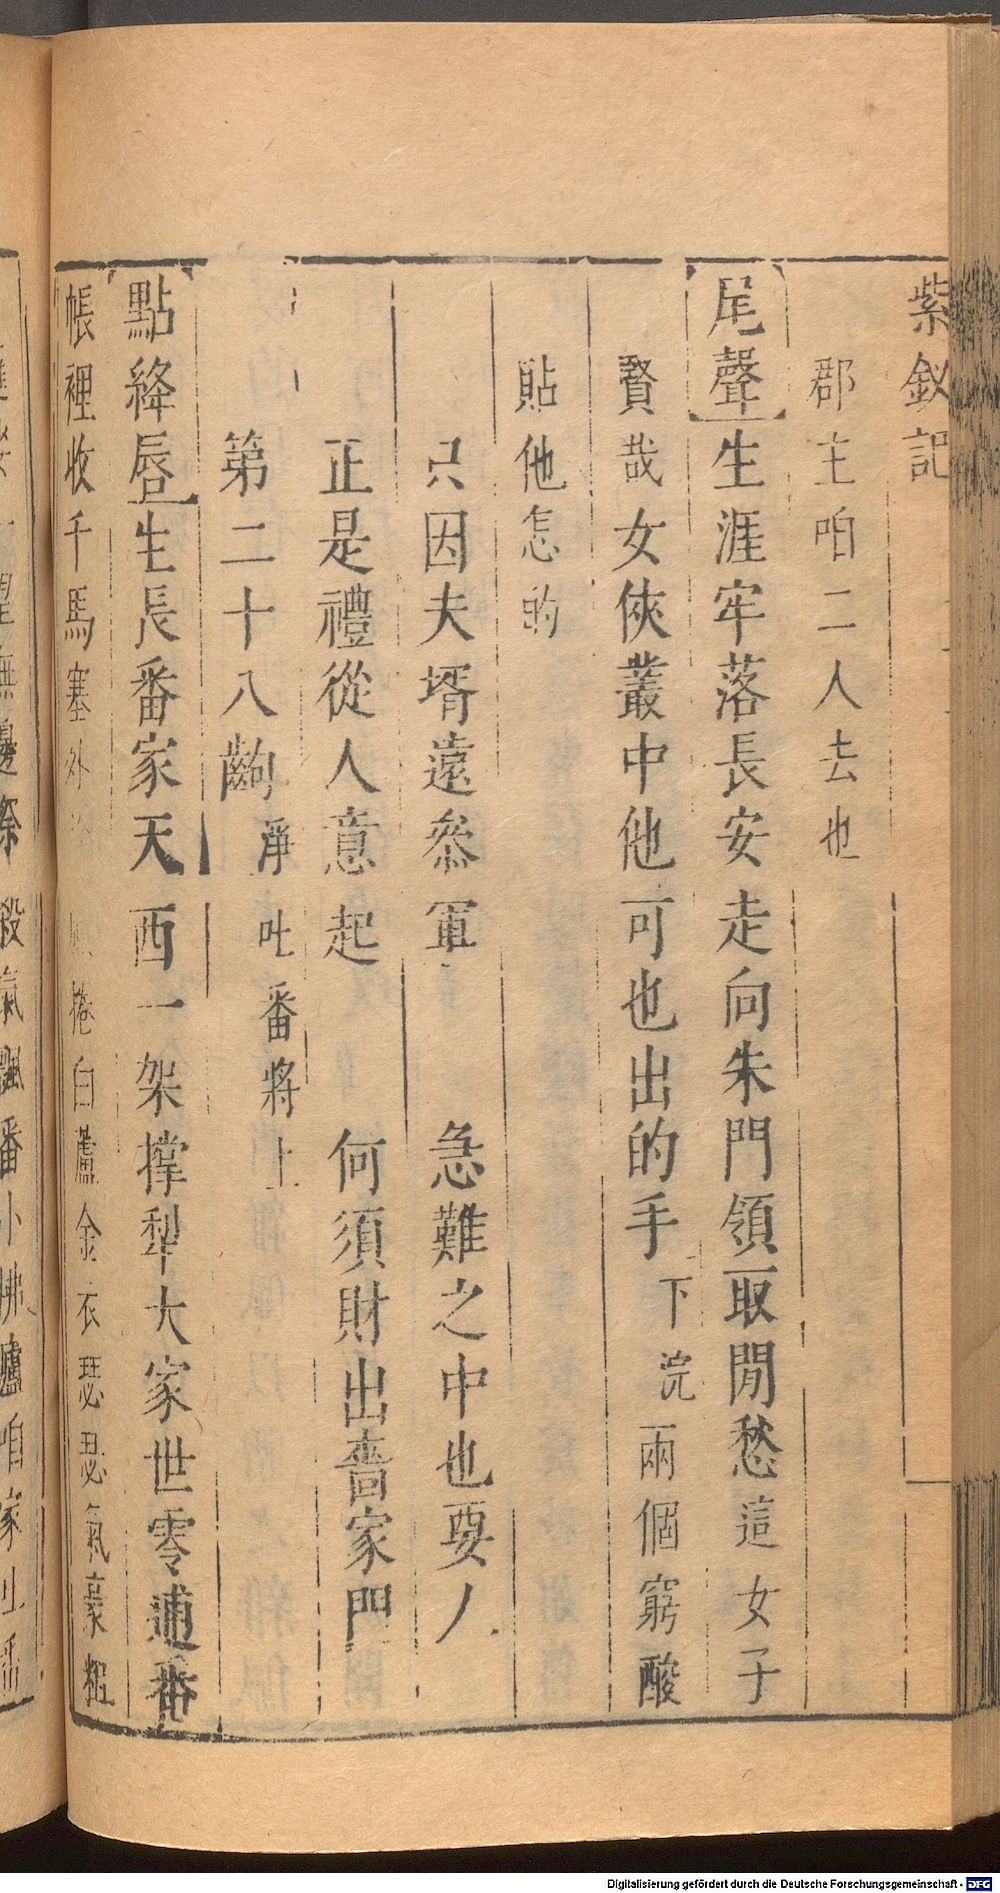 紫釵記
郡主咱二人去也
尾聲生涯牢落長安走向朱門領取閒愁這女子
賢哉女俠叢中他可也出的手下浣兩個窮酸
貼他怎的
只因夫壻遠叅軍 急難之中也要人
正是禮從人意起 何須財出嗇家門
第二十八齣淨吐番將上
點絳唇生長番家天西一架撑犁大家世零逋番
帳裡收千馬塞外 捲白蘆金衣瑟瑟氣豪粗
無邊 殺氣飄番小拂廬咱家吐番
Digitalisierung gefördert durch die Deutsche Forschungsgemeinschaft - DFG